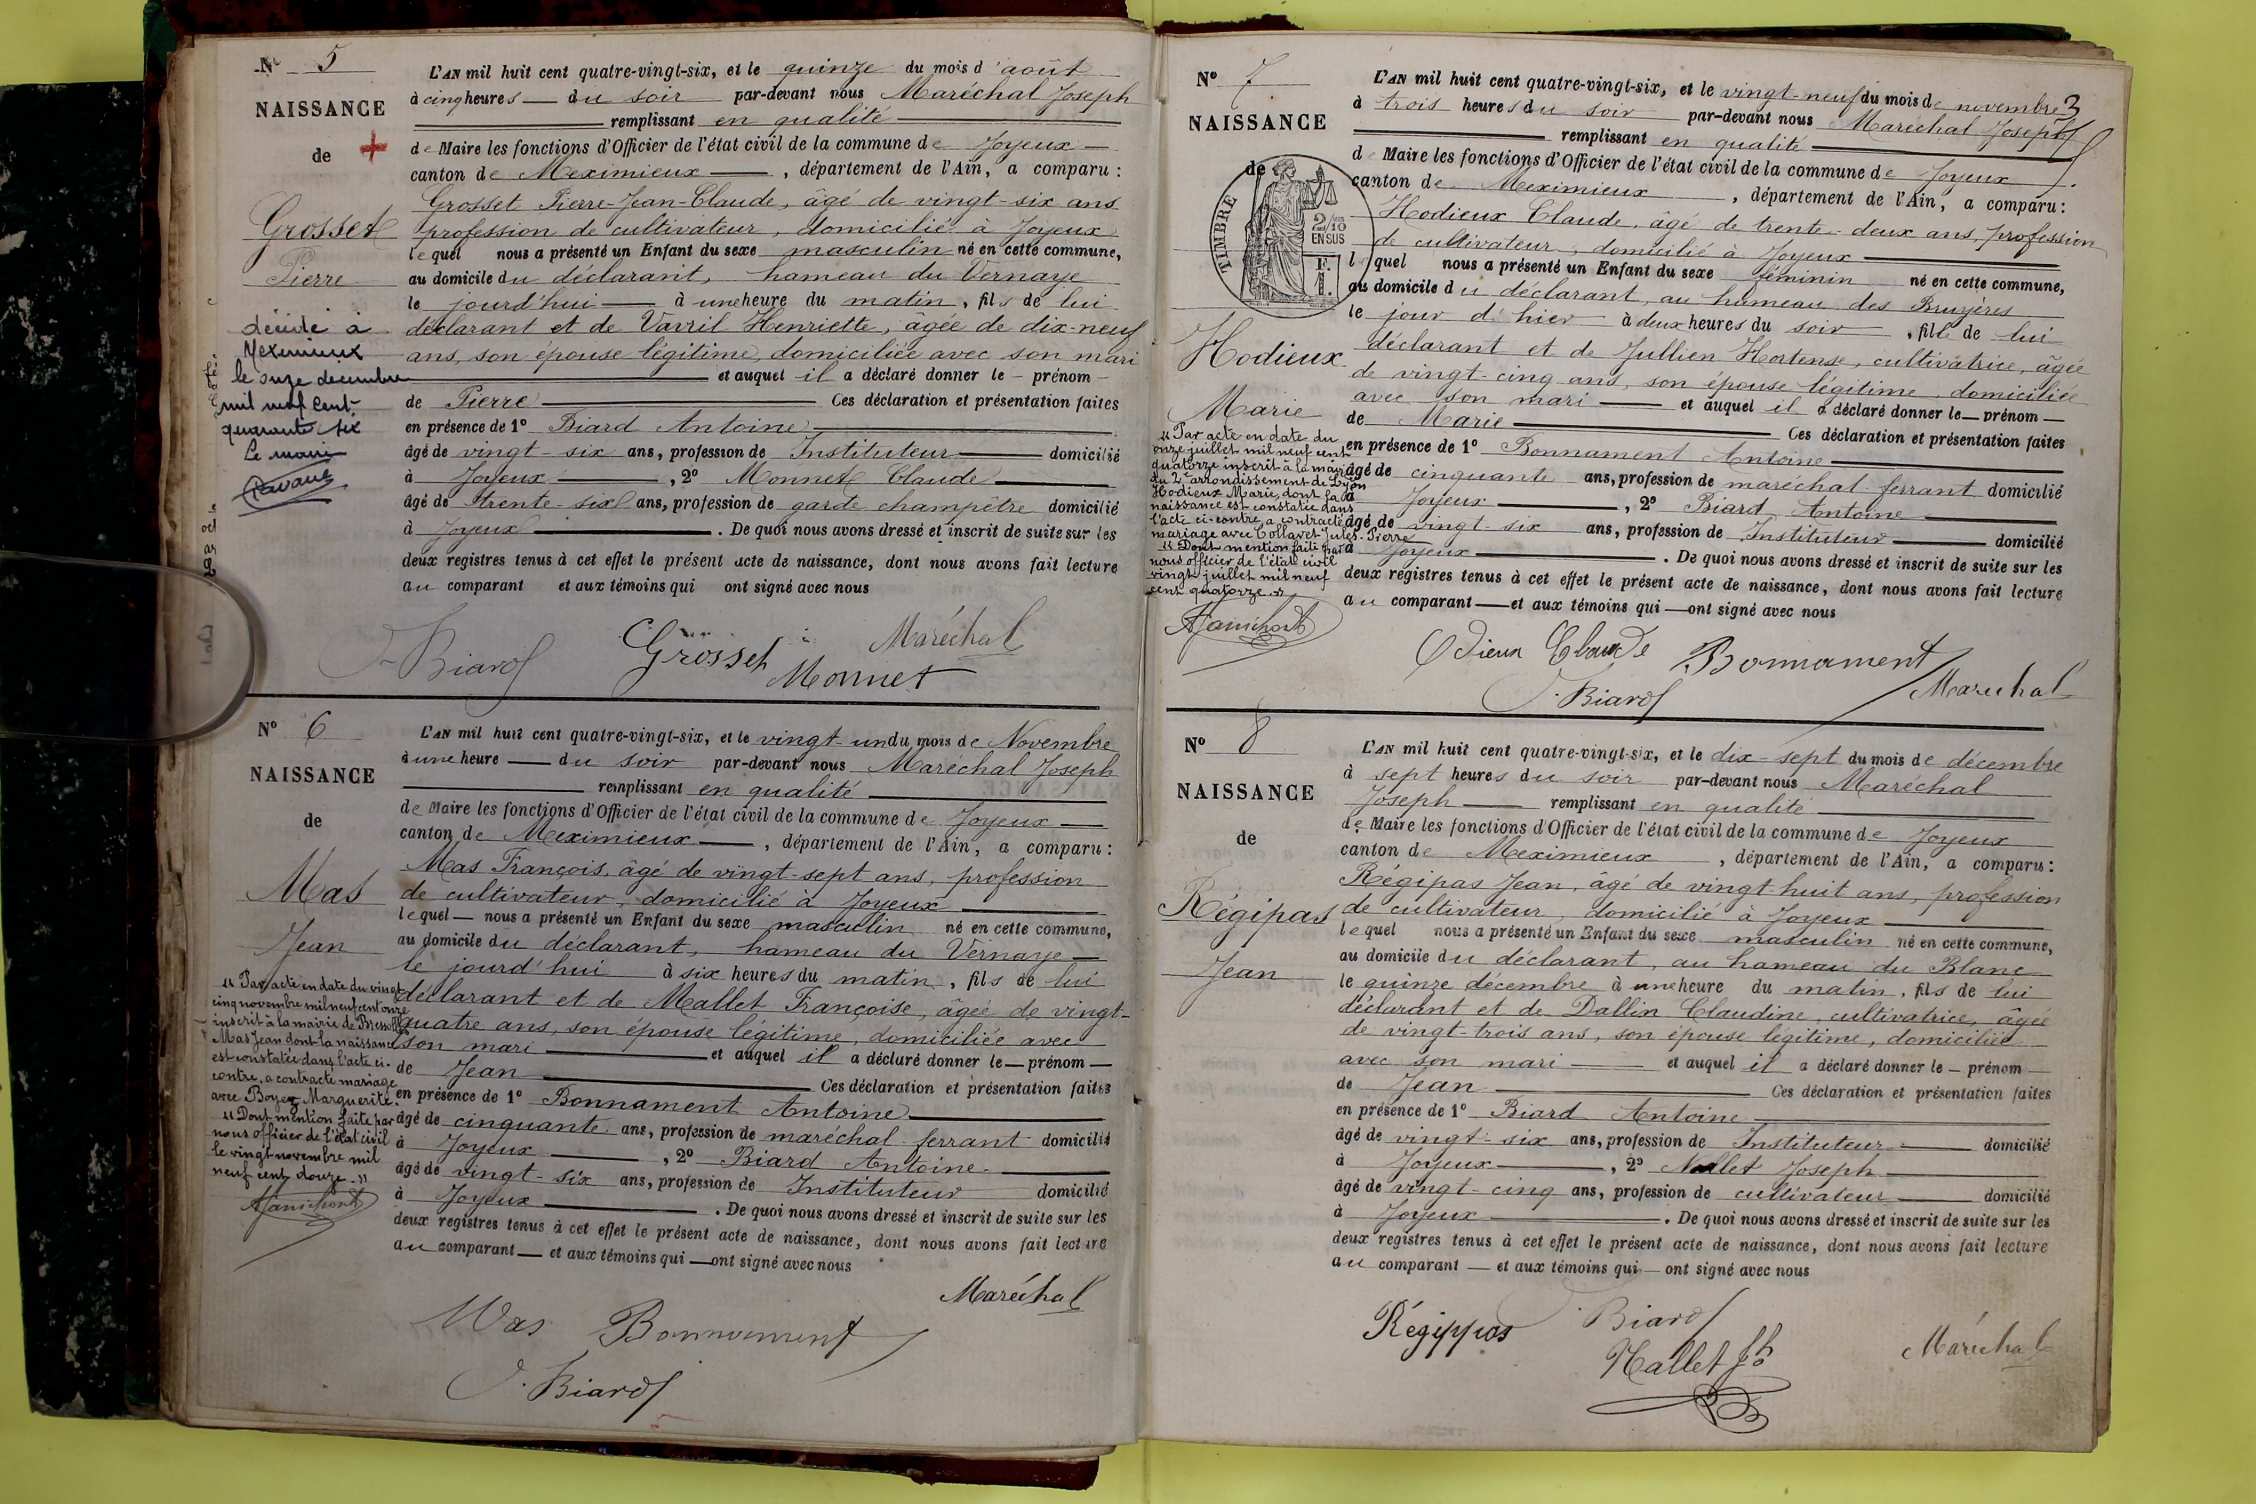 N° 5
NAISSANCE
de
Grosset
Pierre
décédé à
Meximieux
le onze decembre
mil neuf cent
quarante six
Le maire
L'AN mil huit cent quatre-vingt-six, et le quinze du mois d'août
à cinq heures du soir par-devant nous Maréchal Joseph
remplissant en qualité
de Maire les fonctions d'Officier de l'état civil de la commune de Joyeux
canton de Meximieux, département de l'Ain, a comparu :
Grosset Pierre-Jean-Claude, âgé de vingt-six ans
profession de cultivateur, domicilié à Joyeux
lequel nous a présenté un Enfant du sexe masculin né en cette commune,
au domicile du déclarant, hameau du Vernaye
le jourd'hui à une heure du matin, fils de lui
déclarant et de Vavril Henriette, âgée de dix-neuf
ans, son épouse légitime, domiciliée avec son mari
et auquel il a déclaré donner le prénom
de Pierre Ces déclaration et présentation faites
en présence de 1° Biard Antoine
âgé de vingt-six ans, profession de Instituteur domicilié
à Joyeux, 2° Monnet Claude
âgé de trente-six ans, profession de garde champêtre domicilié
à Joyeux. De quoi nous avons dressé et inscrit de suite sur les
deux registres tenus à cet effet le présent acte de naissance, dont nous avons fait lecture
au comparant et aux témoins qui ont signé avec nous
Biard Grosset Monnet Maréchal
N° 6
NAISSANCE
de
Mas
Jean
"Par acte en date du vingt
cinq novembre mil neuf cent onze
inscrit à la mairie de Bressolles
Mas Jean dont la naissance
est constatée dans l'acte ci-
contre, a contracté mariage
avec Boyer Marguerite.
"Dont mention faite par
nous officier de l'état civil
le vingt novembre mil
neuf cent douze."
L'AN mil huit cent quatre-vingt-six, et le vingt-un du mois de Novembre
à une heure du soir par-devant nous Maréchal Joseph
remplissant en qualité
de Maire les fonctions d'Officier de l'état civil de la commune de Joyeux
canton de Meximieux, département de l'Ain, a comparu :
Mas François, âgé de vingt-sept ans, profession
de cultivateur, domicilié à Joyeux
lequel nous a présenté un Enfant du sexe masculin né en cette commune,
au domicile du déclarant, hameau du Vernaye
le jourd'hui à six heures du matin, fils de lui
déclarant et de Mallet Françoise, âgée de vingt-
quatre ans, son épouse légitime, domiciliée avec
son mari et auquel il a déclaré donner le prénom
de Jean Ces déclaration et présentation faites
en présence de 1° Bonnament Antoine
âgé de cinquante ans, profession de maréchal-ferrant domicilié
à Joyeux, 2° Biard Antoine
âgé de vingt-six ans, profession de Instituteur domicilié
à Joyeux. De quoi nous avons dressé et inscrit de suite sur les
deux registres tenus à cet effet le présent acte de naissance, dont nous avons fait lecture
au comparant et aux témoins qui ont signé avec nous
Maréchal
Mas Bonnament
Biard
3
N° 7
NAISSANCE
de
TIMBRE
2/10
EN SUS
Hodieux
Marie
"Par acte en date du
onze juillet mil neuf cent
quatorze inscrit à la mairie
du 2e arrondissement de Lyon
Hodieux Marie, dont la
naissance est constatée dans
l'acte ci-contre, a contracté
mariage avec Collavet Jules-Pierre
"Dont mention faite par
nous officier de l'état civil
vingt juillet mil neuf
cent quatorze."
L'AN mil huit cent quatre-vingt-six, et le vingt-neuf du mois de novembre
à trois heures du soir par-devant nous Maréchal Joseph
remplissant en qualité
de Maire les fonctions d'Officier de l'état civil de la commune de Joyeux
canton de Meximieux, département de l'Ain, a comparu :
Hodieux Claude, âgé de trente-deux ans, profession
de cultivateur, domicilié à Joyeux
lequel nous a présenté un Enfant du sexe féminin né en cette commune,
au domicile du déclarant, au hameau des Bruyères
le jour d'hier à deux heures du soir, fille de lui
déclarant et de Jullien Hortense, cultivatrice, âgée
de vingt-cinq ans, son épouse légitime, domiciliée
avec son mari et auquel il a déclaré donner le prénom
de Marie Ces déclaration et présentation faites
en présence de 1° Bonnament Antoine
âgé de cinquante ans, profession de maréchal-ferrant domicilié
à Joyeux, 2° Biard Antoine
âgé de vingt-six ans, profession de Instituteur domicilié
à Joyeux. De quoi nous avons dressé et inscrit de suite sur les
deux registres tenus à cet effet le présent acte de naissance, dont nous avons fait lecture
au comparant et aux témoins qui ont signé avec nous
Odieux Claude Bonnament
Biard Maréchal
N° 8
NAISSANCE
de
Régipas
Jean
L'AN mil huit cent quatre-vingt-six, et le dix-sept du mois de décembre
à sept heures du soir par-devant nous Maréchal
Joseph remplissant en qualité
de Maire les fonctions d'Officier de l'état civil de la commune de Joyeux
canton de Meximieux, département de l'Ain, a comparu :
Régipas Jean, âgé de vingt-huit ans, profession
de cultivateur, domicilié à Joyeux
lequel nous a présenté un Enfant du sexe masculin né en cette commune,
au domicile du déclarant, au hameau du Blanc
le quinze décembre à une heure du matin, fils de lui
déclarant et de Dallin Claudine, cultivatrice, âgée
de vingt-trois ans, son épouse légitime, domiciliée
avec son mari et auquel il a déclaré donner le prénom
de Jean Ces déclaration et présentation faites
en présence de 1° Biard Antoine
âgé de vingt-six ans, profession de Instituteur domicilié
à Joyeux, 2° Nallet Joseph
âgé de vingt-cinq ans, profession de cultivateur domicilié
à Joyeux. De quoi nous avons dressé et inscrit de suite sur les
deux registres tenus à cet effet le présent acte de naissance, dont nous avons fait lecture
au comparant et aux témoins qui ont signé avec nous
Régippas Biard
Nallet Jh Maréchal